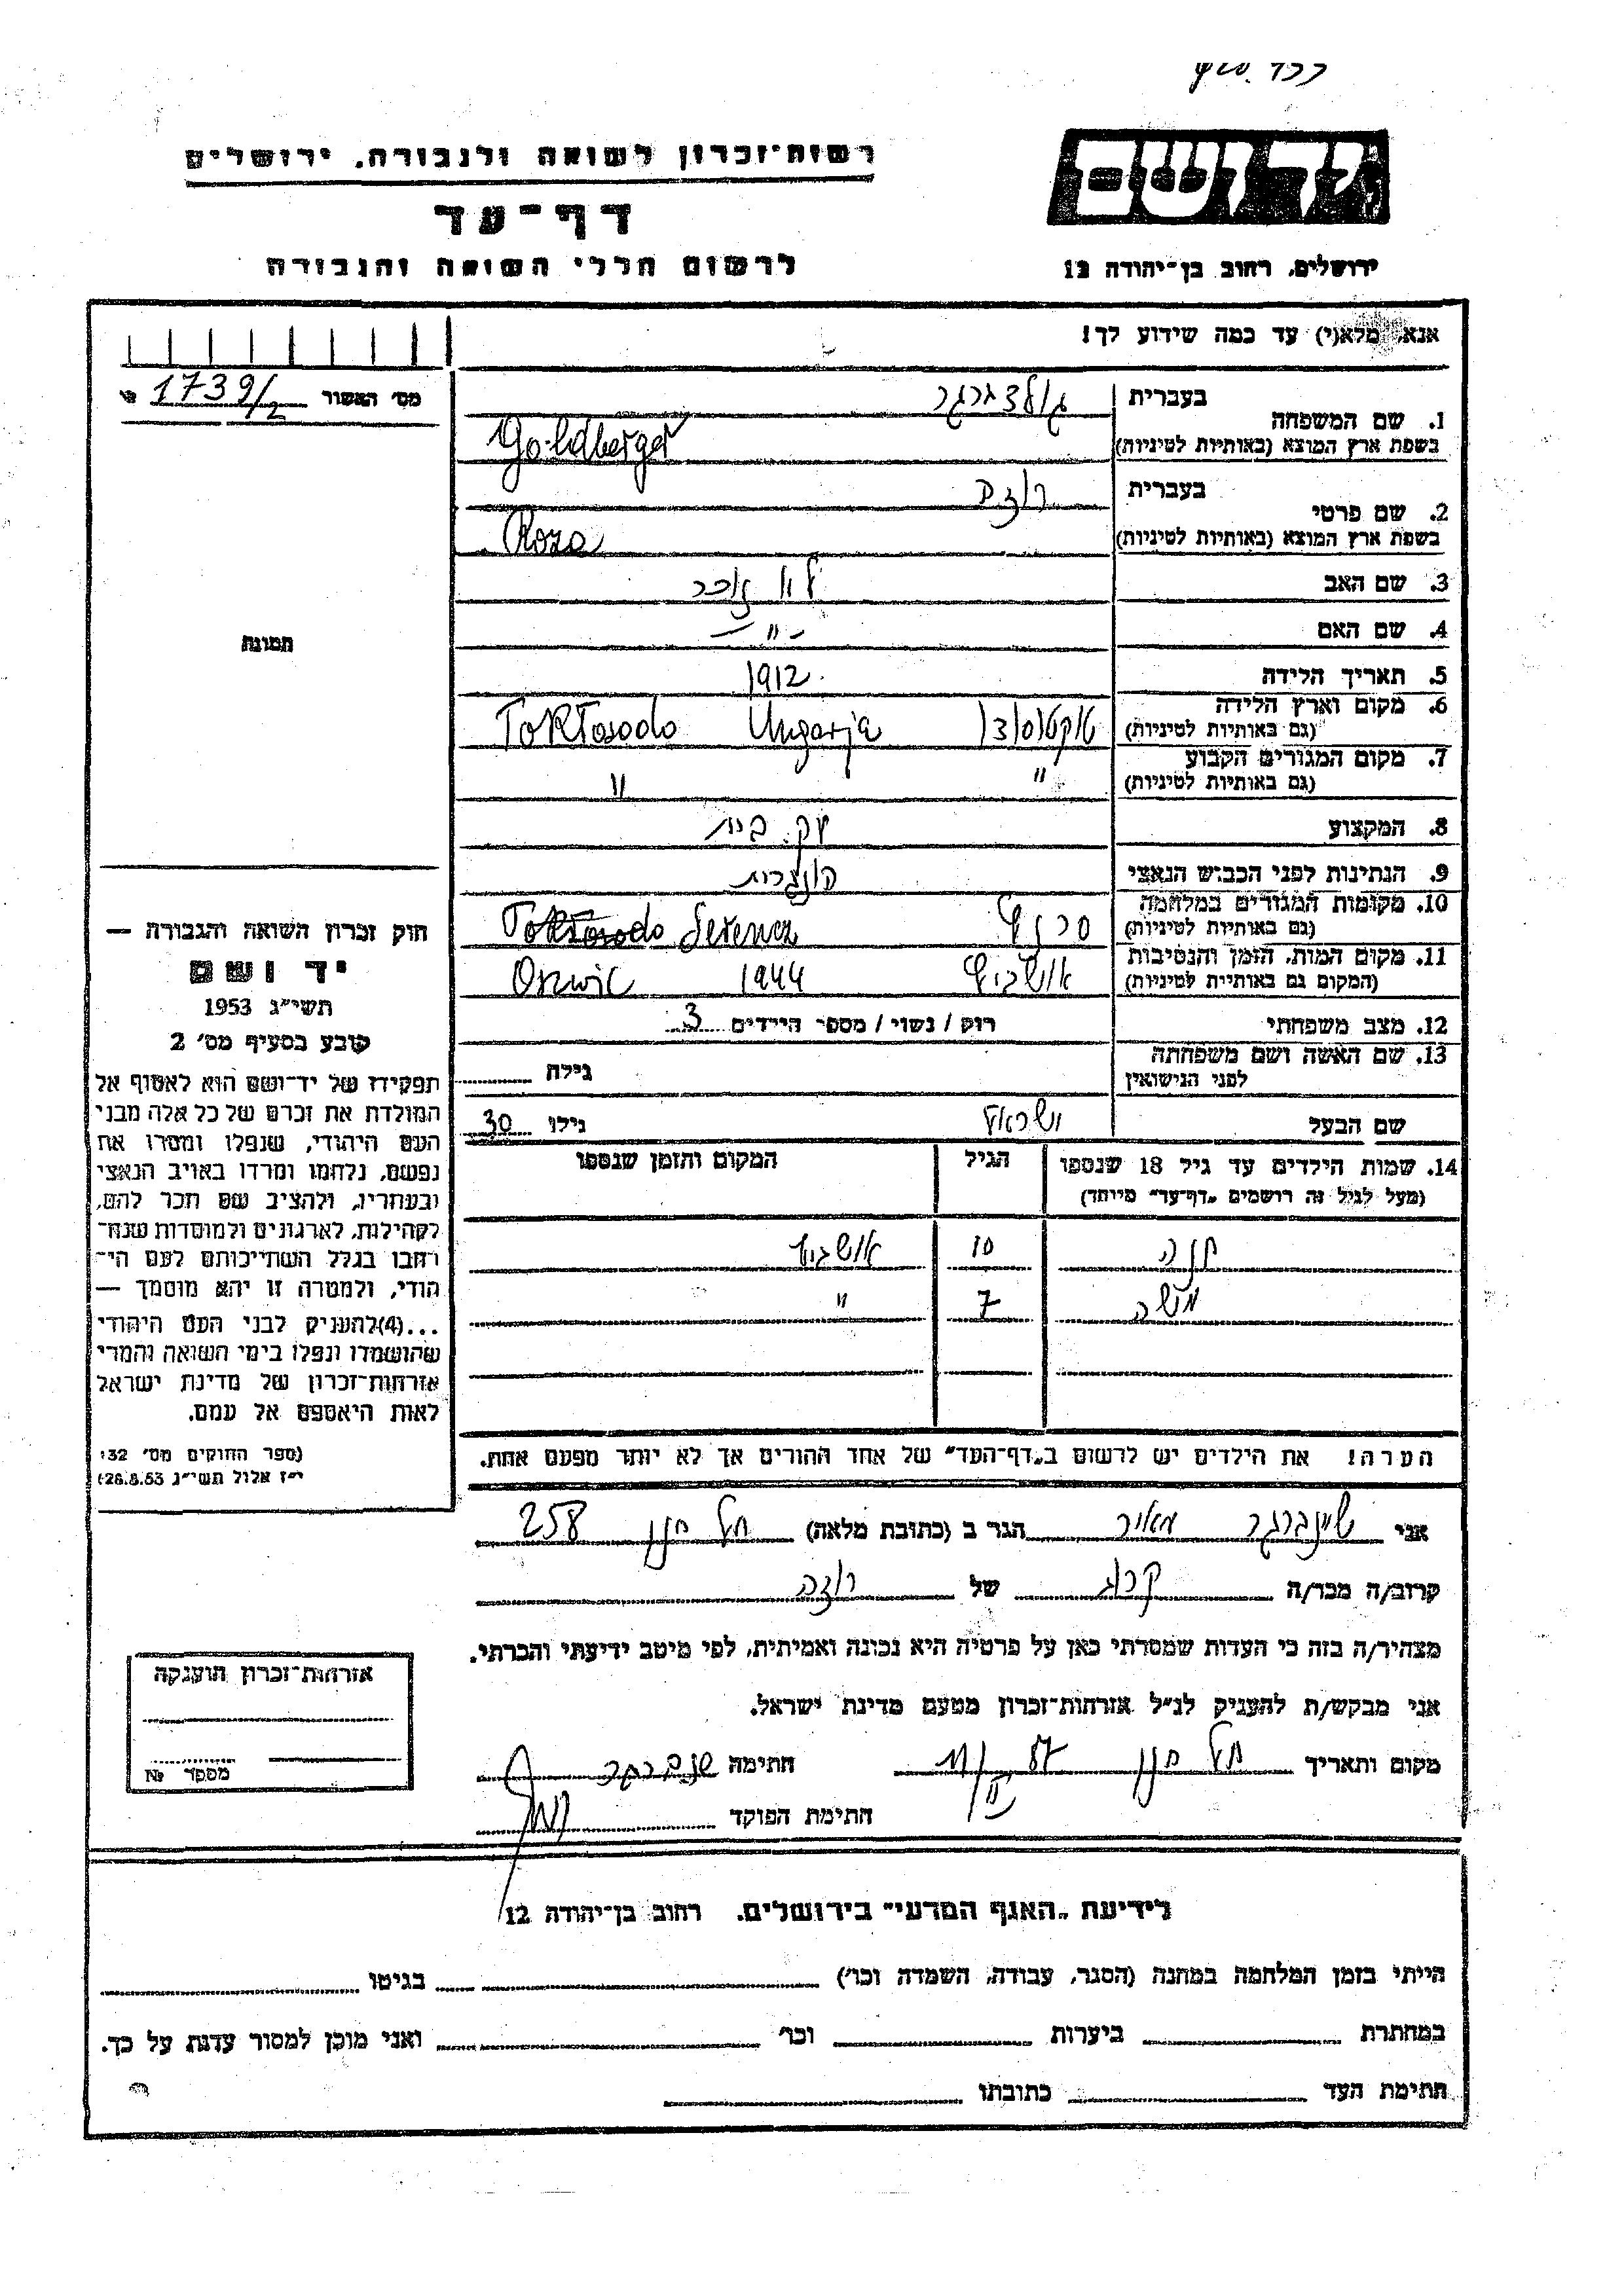 רשות-זכרון לשואה ולגבורה. ירושלים
יד ושם
דף-עד
לרשום חללי השואה והגבורה
ירושלים, רחוב בן-יהודה 12
אנא, מלא(י) עד כמה שידוע לך!
מס' האשור 1739/2
1. שם המשפחה בעברית גולדברגר
בשפת ארץ המוצא (באותיות לטיניות) Goldberger
2. שם פרטי בעברית רוזה
בשפת ארץ המוצא (באותיות לטיניות) Roza
3. שם האב לא זוכר
4. שם האם — " —
5. תאריך הלידה 1912
6. מקום וארץ הלידה
(גם באותיות לטיניות) Ungarja
7. מקום המגורים הקבוע
(גם באותיות לטיניות) " "
8. המקצוע עק. בית
9. הנתינות לפני הכבוש הנאצי הונגרית
10. מקומות המגורים במלחמה
(גם באותיות לטיניות) סרנץ Serencz
11. מקום המות, הזמן והנסיבות
(המקום גם באותיות לטיניות) אושביץ 1944 Oswic
12. מצב משפחתי רוק / נשוי / מספר הילדים 3
13. שם האשה ושם משפחתה
לפני הנישואין גילה
שם הבעל ישראל גילו 30
14. שמות הילדים עד גיל 18 שנספו הגיל המקום והזמן שנספו
(מעל לגיל זה רושמים "דף-עד" מיוחד)
חנה 10 אושביץ
משה 7 "
הערה! את הילדים יש לרשום ב"דף-העד" של אחד ההורים אך לא יותר מפעם אחת.
תמונה
חוק זכרון השואה והגבורה —
יד ושם
תשי"ג 1953
קובע בסעיף מס' 2
תפקידו של יד-ושם הוא לאסוף אל
המולדת את זכרם של כל אלה מבני
העם היהודי, שנפלו ומסרו את
נפשם, נלחמו ומרדו באויב הנאצי
ובעוזריו, ולהציב שם וזכר להם,
לקהילות, לארגונים ולמוסדות שנח-
רבו בגלל השתייכותם לעם הי-
הודי, ולמטרה זו יהא מוסמך —
...(4)להעניק לבני העם היהודי
שהושמדו ונפלו בימי השואה והמרי
אזרחות-זכרון של מדינת ישראל
לאות היאספם אל עמם.
(ספר החוקים מס' 132
י"ז אלול תשי"ג 28.8.53)
אני שיינברגר מאיר הגר ב (כתובת מלאה) תל חנן 258
קרוב/ה מכר/ה קרוב של רוזה
מצהיר/ה בזה כי העדות שמסרתי כאן על פרטיה היא נכונה ואמיתית, לפי מיטב ידיעתי והכרתי.
אני מבקש/ת להעניק לנ"ל אזרחות-זכרון מטעם מדינת ישראל.
מקום ותאריך תל חנן חתימה
חתימת הפוקד
אזרחות-זכרון הוענקה
מספר №
לידיעת "האגף המדעי" בירושלים. רחוב בן-יהודה 12
הייתי בזמן המלחמה במחנה (הסגר, עבודה, השמדה וכו') בגיטו
במחתרת ביערות וכו' ואני מוכן למסור עדות על כך.
חתימת העד כתובתו